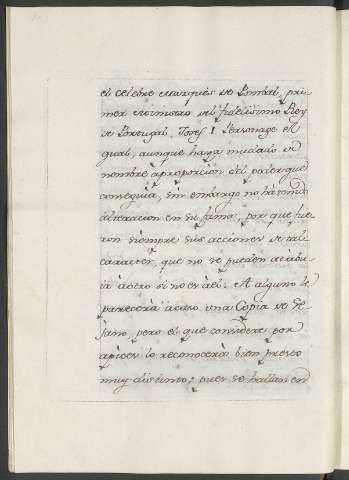 el celebre Marquès de Pombal, pri-
mer Ministro del fidelisimo Rey
de Portugal, Josef I Personage el
qual, aunque haya mudado de
nombre à proporcion del poder que
conseguia, sin embargo no hà tenido
alteracion en su fama, por que fue-
ron siempre sus acciones de tal
caracter, que no se pueden atribu-
ir à otro si no er à el. A alguno le
parecerà acaso una Copia de Se-
jano, pero el que considere por
apices lo reconocerà bien presto
muy distinto; pues se hallan en